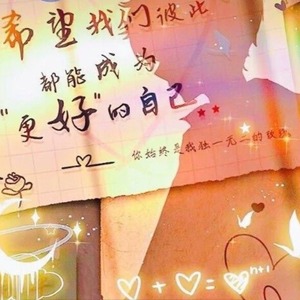 希望我们彼此
都能成为
"更好"的自己
你始终是我独一无二的玫瑰
♡ + ♡ = ♡ⁿ⁺¹